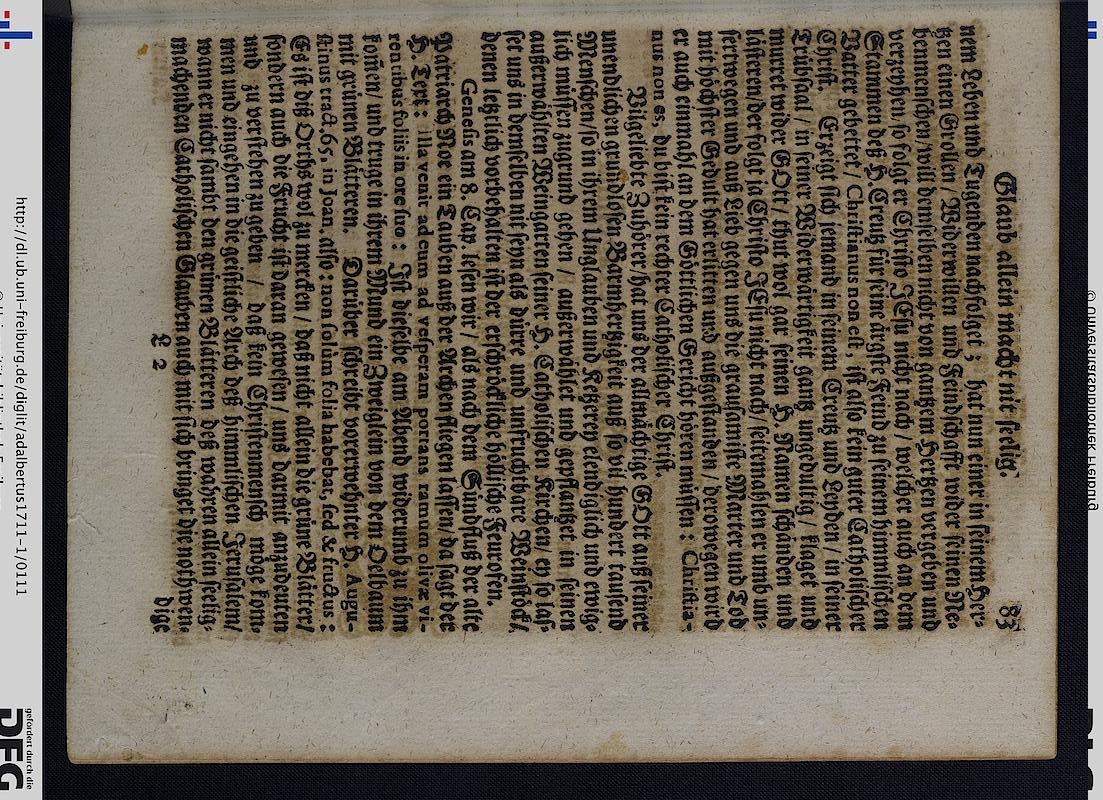 Glaub allein macht nit seelig. 83
nem Leben und Tugenden nachfolget; hat nun einer in seinem Her-
tzen einen Grollen/ Widerwillen und Feindschafft wider seinen Ne-
benmenschen/ will demselben nicht von gantzem Hertzen vergeben und
verzeyhen/ so folgt er Christo JEsu nicht nach/ welcher auch an dem
Stammen deß H. Creutz für seine ärgste Feind zu seinem himmlischen
Vatter gebettet/ Christianus non est, ist also kein guter Catholischer
Christ. Erzeigt sich jemand in seinem Creutz und Leyden/ in seiner
Trübsaal/ in seiner Widerwärtigkeit gantz ungedultig/ klaget und
murret wider GOtt/ thut wol gar seinen H. Namen schänden und
lästeren/ der folgt ja Christo JEsu nicht nach/ seitemahlen er umb un-
sertwegen und auß Lieb gegen uns die grausamiste Marter und Tod
mit höchster Gedult hat erlitten und außgestanden/ derowegen wird
er auch einmahl an dem Göttlichen Gericht hören müssen: Christia-
nus non es, du bist kein rechter Catholischer Christ.
Vilgeliebte Zuhörer/ hat uns der allmächtige GOtt auß seiner
unendlichen grundlosen Barmhertzigkeit auß so vil hundert tausend
Menschen/ so in ihrem Unglauben und Ketzerey elendiglich und ewig-
lich müssen zugrund gehen/ außerwählet und gepflantzet in seinen
außerwählten Weingarten seiner H. Catholischen Kirchen/ ey so las-
set uns in demselben nit seyn als dürre und unfruchtbare Weinstöck/
denen letztlich vorbehalten ist der erschröckliche höllische Feurofen.
Genesis am 8. Cap. lesen wir/ als nach dem Sündfluß der alte
Patriarch Noe ein Tauben auß der Archen fliegen lassen/ da sagt der
H. Text: illa venit ad eum ad vesperam portans ramum olivæ vi-
rentibus foliis in ore suo: Ist dieselbe am Abend widerumb zu ihm
kommen/ und truge in ihrem Mund ein Zweiglein von dem Oelbaum
mit grünen Blätteren. Darüber schreibt vorerwehnter H. Augu-
stinus tract. 65. in Joan. also: non solùm folia habebat, sed & fructus:
Es ist diß Orths wol zu mercken/ daß nicht allein die grüne Blätter/
sondern auch die Frücht ist daran gewesen/ uns darmit anzudeuten
und zu verstehen zu geben/ daß kein Christenmensch möge kom-
men und eingehen in die geistliche Arch deß himmlischen Jerusalem/
wann er nicht sambt den grünen Blätteren deß wahren allein seelig-
machenden Catholischen Glauben auch mit sich bringet die nothwen-
L 2 dige
http://dl.ub.uni-freiburg.de/diglit/adalbertus1711-1/0111
gefördert durch die
DFG